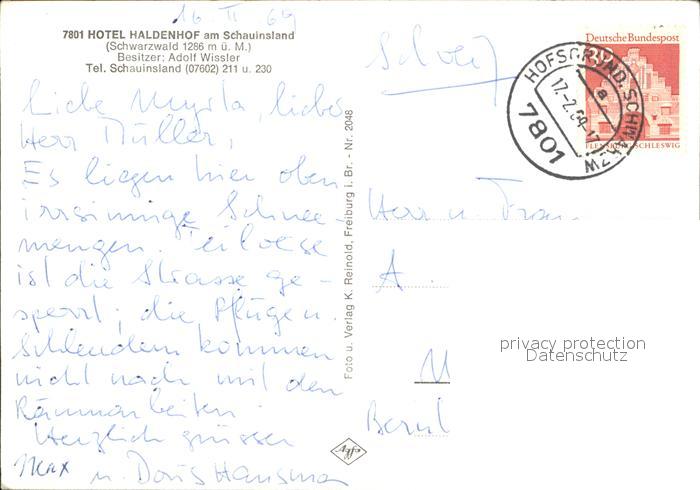 16. II 69
7801 HOTEL HALDENHOF am Schauinsland
(Schwarzwald 1286 m ü. M.)
Besitzer: Adolf Wissler
Tel. Schauinsland (07602) 211 u. 230
Liebe Myrta, lieber
Herr Müller,
Es liegen hier oben
irrsinnige Schnee-
mengen. Teilweise
ist die Strasse ge-
sperrt; die Pflüge u.
Schleudern kommen
nicht nach mit den
Räumarbeiten.
Herzlich grüssen
Max u. Doris
Foto u. Verlag K. Reinold, Freiburg i. Br. - Nr. 2048
Agfa
Schweiz
Deutsche Bundespost
30
FLENSBURG/SCHLESWIG
HOFSGRUND, SCHWARZW
17.-2.69-17
a
7801
Herr u. Frau
A.
M
privacy protection
Datenschutz